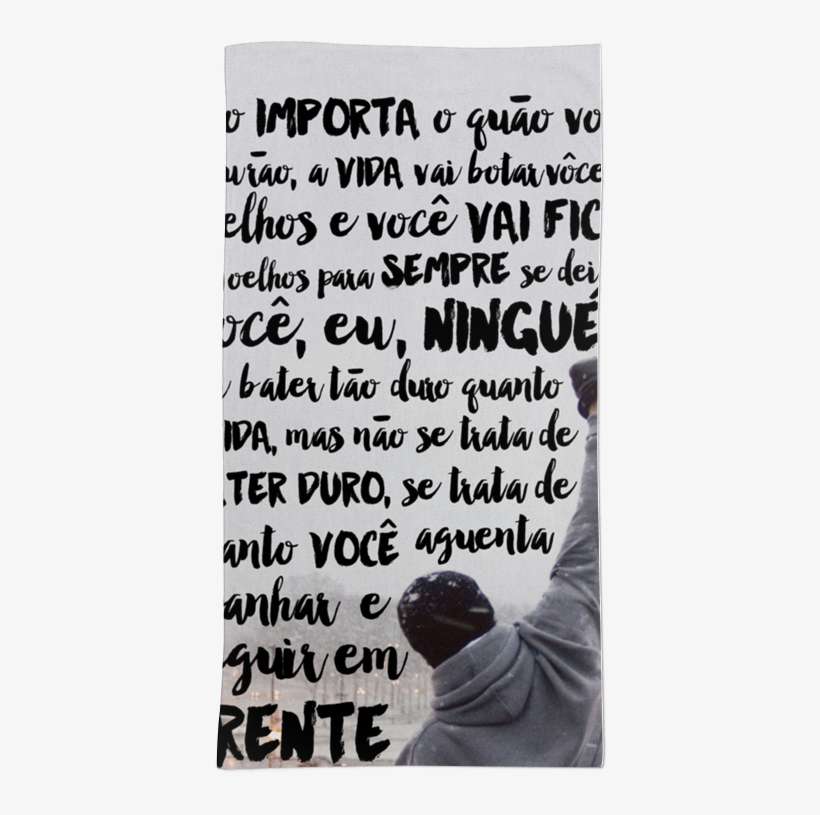 o IMPORTA o quão vo
urão, a VIDA vai botar vôce
elhos e você VAI FIC
joelhos para SEMPRE se dei
ocê, eu, NINGUÉ
bater tão duro quanto
IDA, mas não se trata de
TER DURO, se trata de
anto VOCÊ aguenta
anhar e
guir em
RENTE